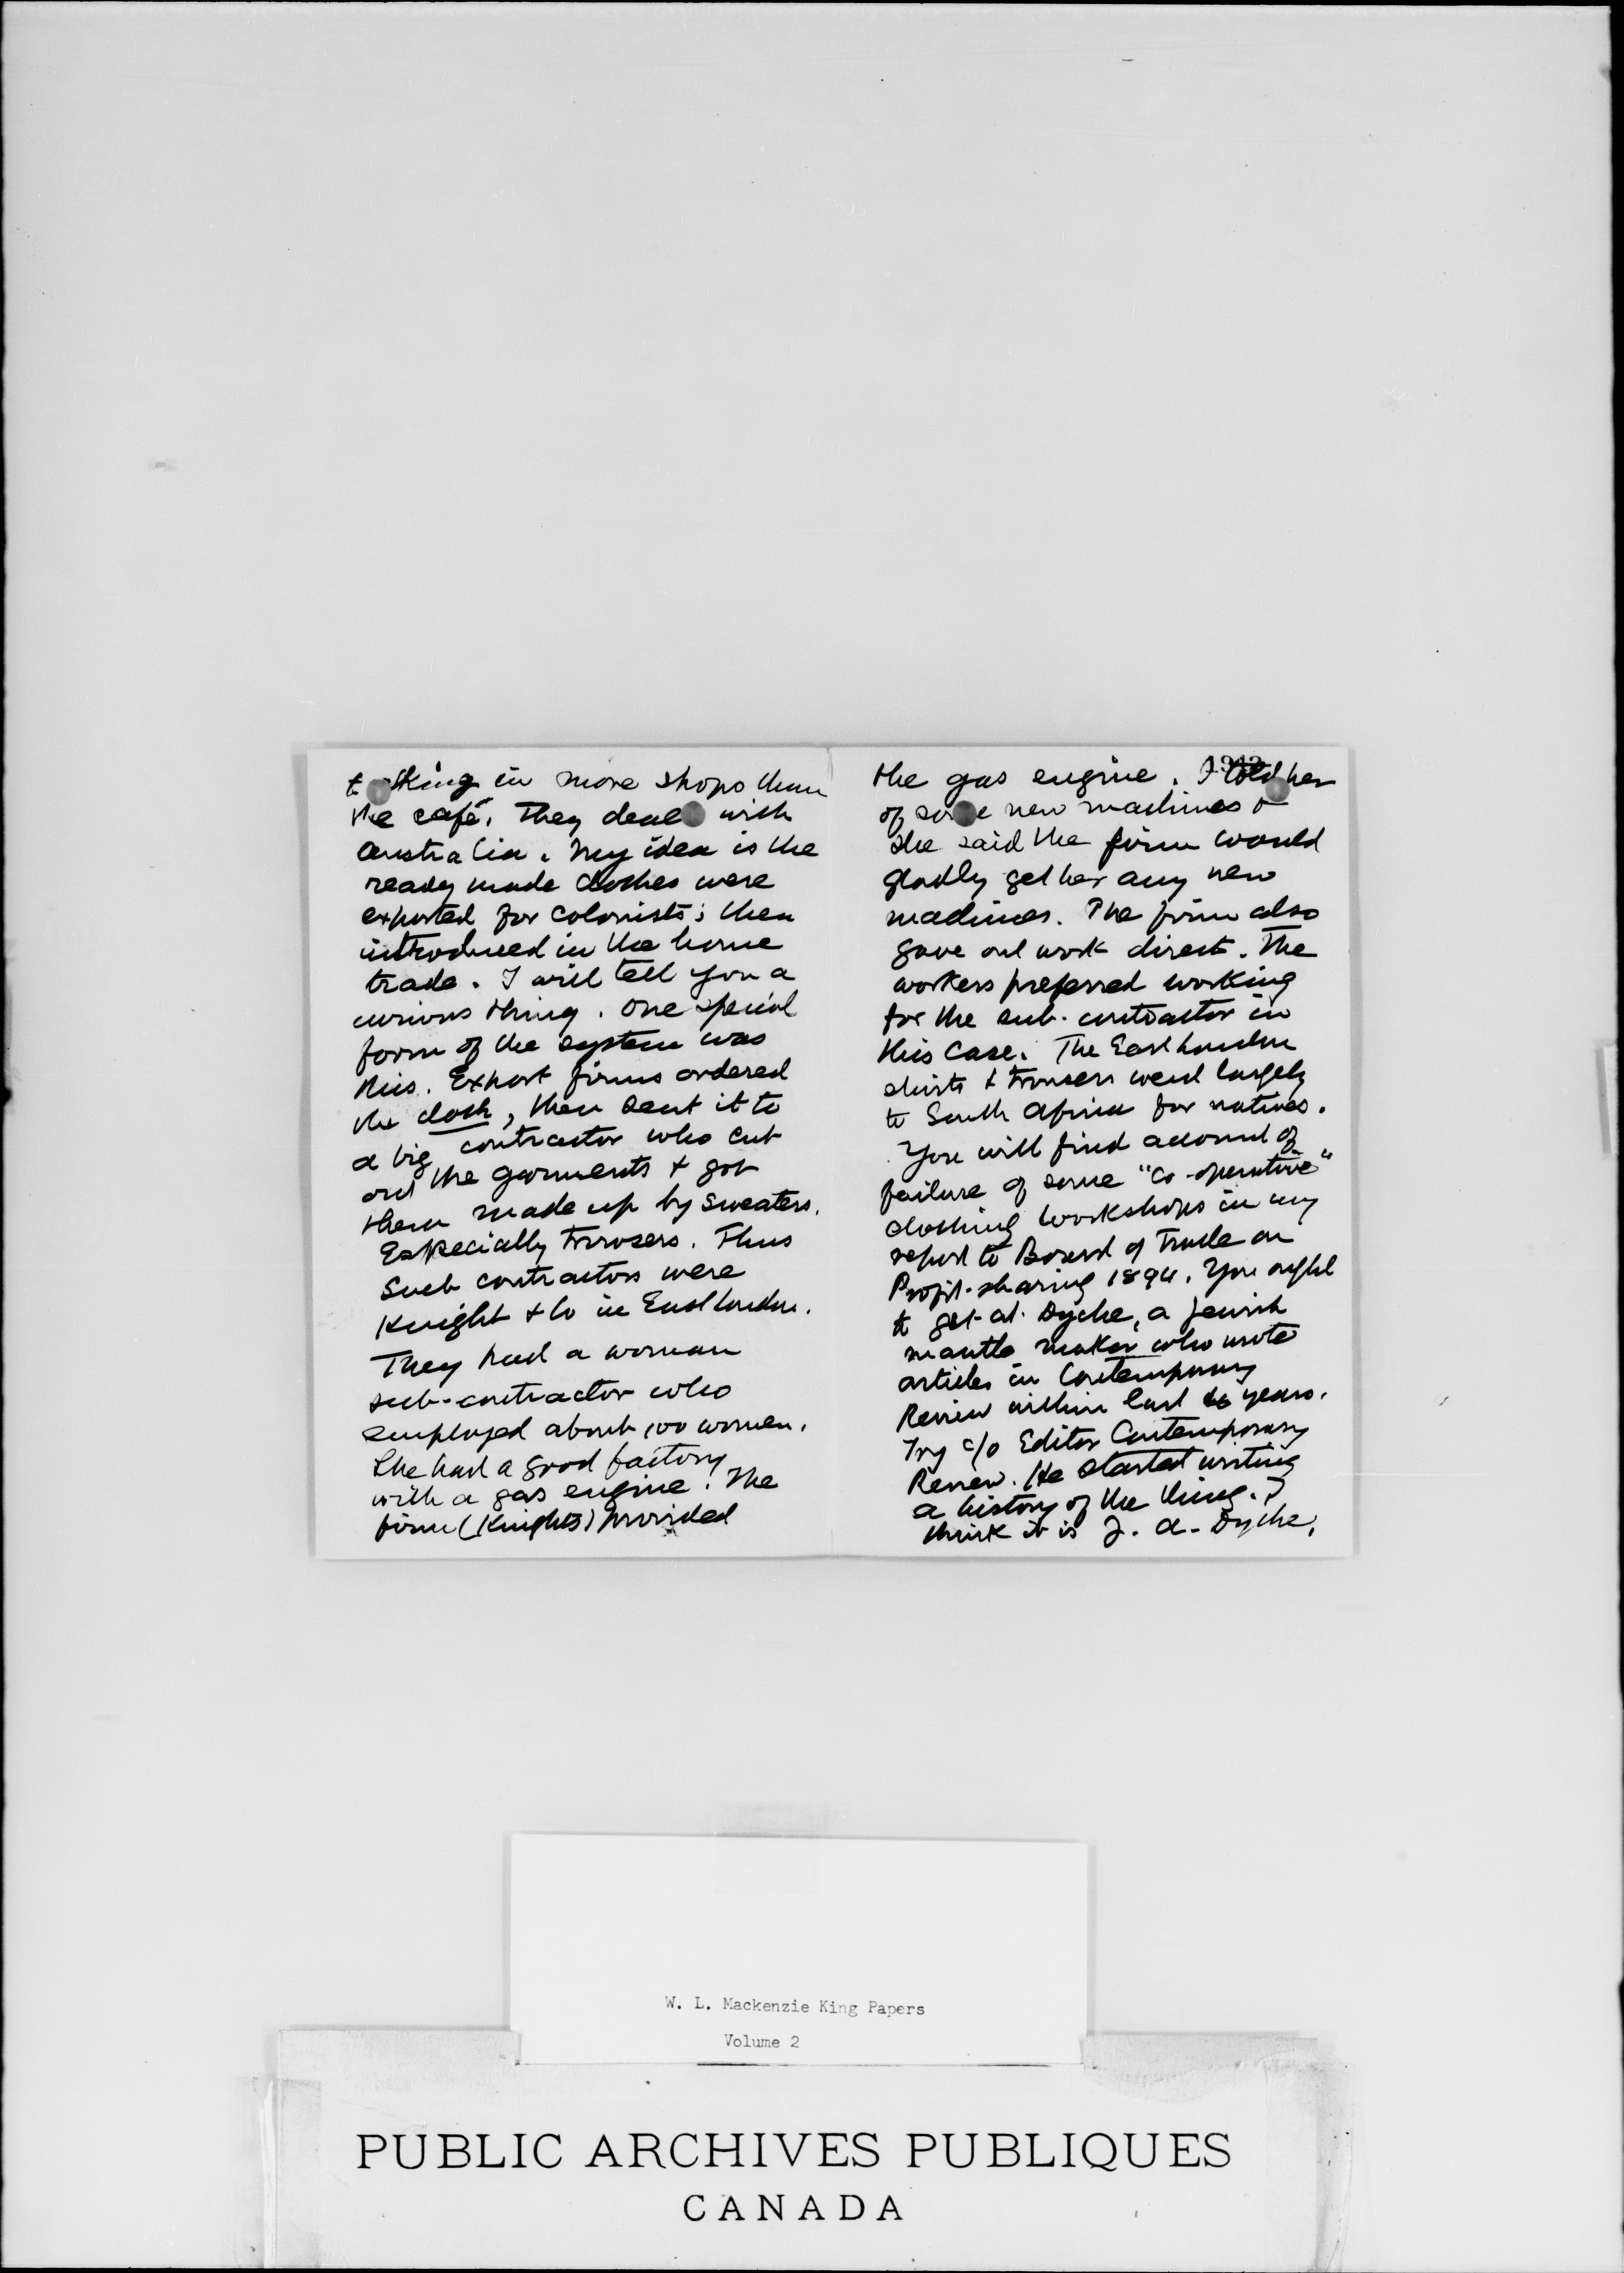 talking in more shops than
the café. They deal with
Australia. My idea is the
ready made clothes were
exported for colonists; then
introduced in the home
trade. I will tell you a
curious thing. One special
form of the system was
this. Export firms ordered
the cloth, then sent it to
a big contractor who cut
out the garments + got
them made up by sweaters.
Especially trousers. Thus
such contractors were
Knight + Co in East London.
They had a woman
sub-contractor who
employed about 100 women.
She had a good factory
with a gas engine. The
firm (Knights) provided
the gas engine. I told her
of some new machines &
she said the firm would
gladly get her any new
machines. The firm also
gave out work direct. The
workers preferred working
for the sub-contractor in
this case. The East London
shirts & trousers went largely
to South Africa for natives.
You will find account of
failure of some "Co-operative"
clothing workshops in my
report to Board of Trade on
Profit-sharing 1894. You ought
to get at Dyche, a Jewish
mantle maker who wrote
articles in Contemporary
Review within last years.
Try c/o Editor Contemporary
Review. He started writing
a history of the thing. I
think it is J. A. Dyche.
W. L. Mackenzie King Papers
Volume 2
PUBLIC ARCHIVES PUBLIQUES
CANADA